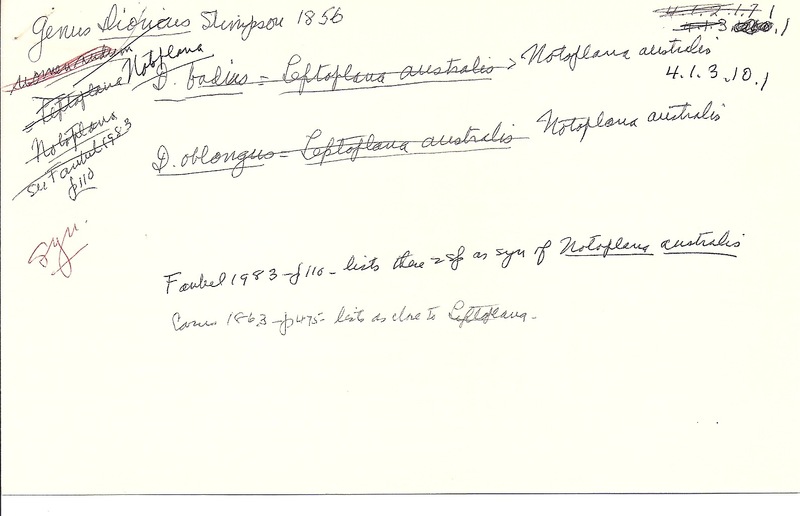 Genus Dioncus Stimpson 1856
4.1.2.1.7.1
4.1.3 .1
nomen nudum
= Leptoplana Notoplana
D. badius = Leptoplana australis > Notoplana australis
4.1.3.10.1
Notoplana
see Faubel 1983
p110
D. oblongus = Leptoplana australis Notoplana australis
Syn.
Faubel 1983 - p110 - lists these 2 sp as syn of Notoplana australis
Carus 1863 - p475 - lists as close to Leptoplana -